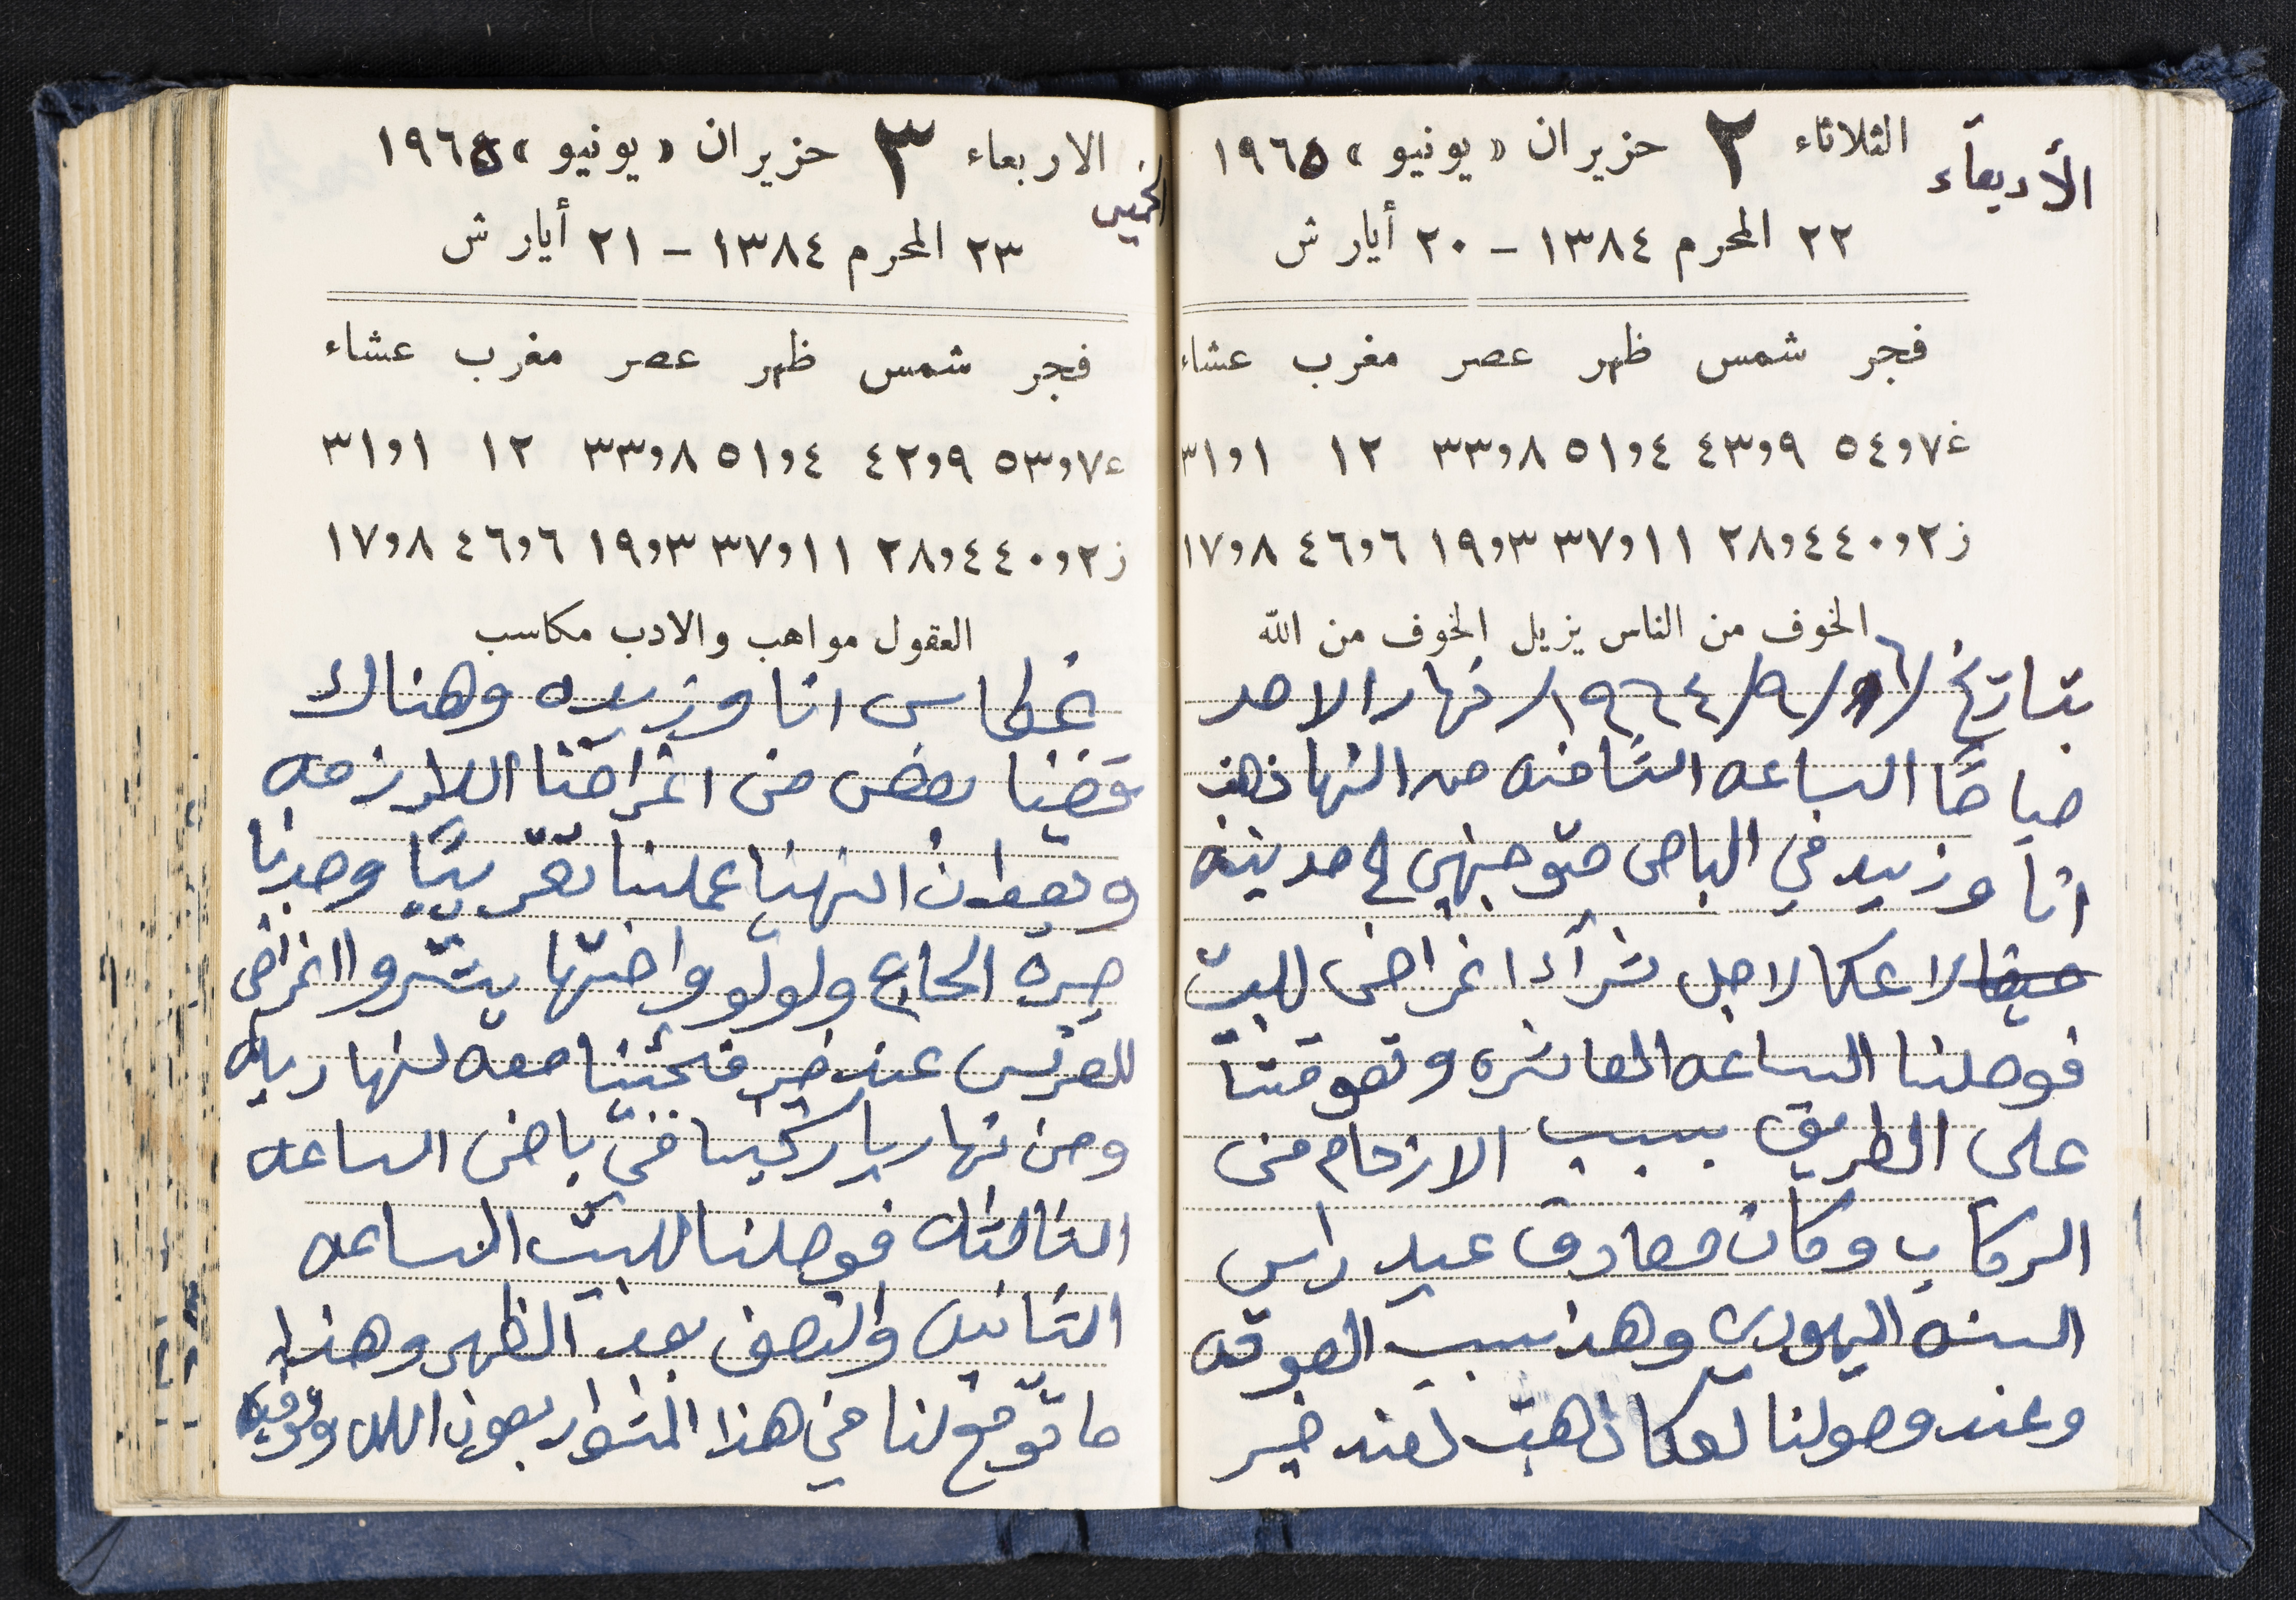 الأربعاء
الثلاثاء ٢ حزيران «يونيو» ١٩٦٥
٢٢ المحرم ١٣٨٤ - ٢٠ أيار ش
فجر شمس ظهر عصر مغرب عشاء
غ ٧و٥٤ ٩و٤٣ ٤و٥١ ٨و٣٣ ١٢ ١و٣١
ز ٢و٤٠ ٤و٢٨ ١١و٣٧ ٣و١٩ ٦و٤٦ ٨و١٧
الخوف من الناس يزيل الخوف من الله
بتاريخ ٦/٩/١٩٦٤/ نهار الاحد
صباحًا الساعه الثامنه من النها ذهبت
انا وزبيده في الباص متوجهين لمدينة
حيفا لا عكا لاجل شرآء اغراض للبيت
فوصلنا الساعه العاشره وتعوقتنا
على الطريق بسبب الازدحام من
الركاب وكان مصادف عيد راس
السنه اليهوديه وهذا سبب العوقه
وعند وصولنا لعكا ذهبت لعند خير
الخميس
الاربعاء ٣ حزيران «يونيو» ١٩٦٥
٢٣ المحرم ١٣٨٤ - ٢١ أيار ش
فجر شمس ظهر عصر مغرب عشاء
غ ٧و٥٣ ٩و٤٢ ٤و٥١ ٨و٣٣ ١٢ ١و٣١
ز ٢و٤٠ ٤و٢٨ ١١و٣٧ ٣و١٩ ٦و٤٦ ٨و١٧
العقول مواهب والادب مكاسب
غطاس انا وزبيده وهناك
قضينا بعض من اغراضنا اللازمه
وبعد ان انهينا عملنا تقريبًا وجدنا
صبره الحاج ولولو واختها يشتروا اغراض
للعرس عند خير فجئنا معه لنهاريا
ومن نهاريا ركبنا في باص الساعه
الثالثه فوصلنا للبيت الساعه
الثانيه والنصف بعد الظهر وهذا
ما توقع لنا في هذا المشوار بعون الله وتوفيقه